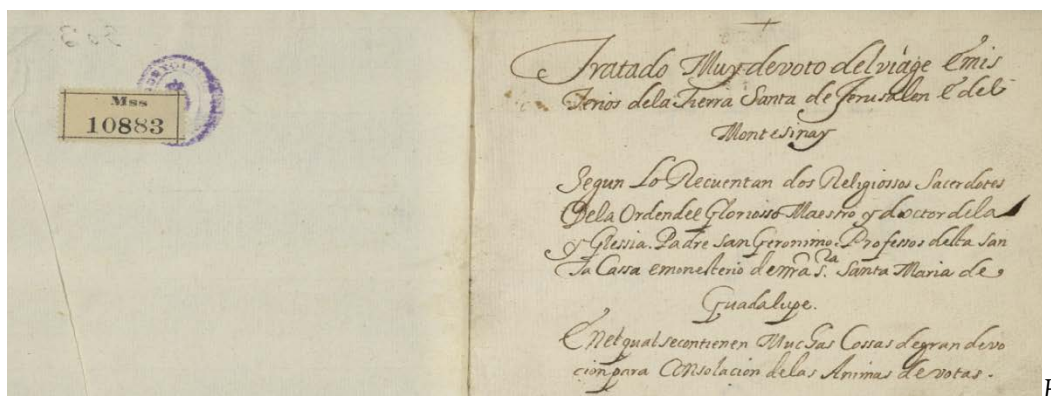 Mss
10883
Tratado Muy devoto del viáge Emis
terios dela Tierra Santa de Jerusalen E del
Montesinay
Segun Lo Recuentan dos Religiosos Sacerdotes
Dela Orden del Glorioso Maestro y doctor dela
yGlessia. Padre San Geronimo. Professos desta San
Ta Cassa emonesterio denrâ S.ra Santa Maria de
Guadalupe.
Enelqual secontienen Muchas Cossas degran devo
cion para Consolacion delas Animas devotas.